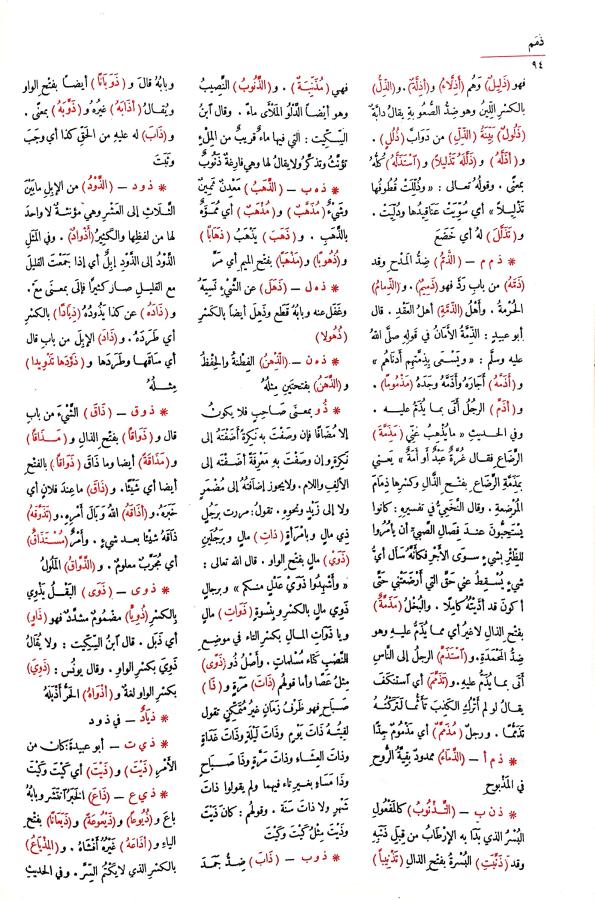 ذمم
٩٤
فهو (ذَلِيلٌ) وَهُم (أَذِلَّاءُ) و(أَذِلَّةٌ). و(الذِّلُّ)
بالكسْرِ اللِّينُ وهو ضِدُّ الصُّعوبةِ يقالُ دابَّةٌ
(ذَلُولٌ) بَيِّنَةُ (الذِّلِّ) من دَوَابَّ (ذُلُلٍ) .
و(أَذَلَّهُ) و(ذَلَّلَهُ تَذْلِيلاً) و(اسْتَذَلَّهُ) كُلُّهُ
بمعنًى . وقولُهُ تعالى : «وذُلِّلَتْ قُطُوفُها
تَذْلِيلاً» أي سُوِّيَتْ عَنَاقِيدُها ودُلِّيَتْ .
و(تَذَلَّلَ) لهُ أي خَضَعَ
* ذ م م – (الذَّمُّ) ضِدُّ المَدْحِ وقد
(ذَمَّهُ) من بابِ رَدَّ فهو (ذَمِيمٌ) . و(الذِّمامُ)
الحُرْمةُ . وأَهْلُ (الذِّمَّةِ) أهلُ العَقْدِ . قال
أبو عبيدٍ : الذِّمَّةُ الأمَانُ في قولِهِ صلَّى اللهُ
عليه وسلَّم : «ويَسْعَى بِذِمَّتِهِم أدناهُم»
و(أَذَمَّهُ) أَجَارَهُ وأَذَمَّهُ وجَدَهُ (مَذْمُوماً) .
و(أَذَمَّ) الرجلُ أَتَى بما يُذَمُّ عليه .
وفي الحديثِ «ما يُذْهِبُ عَنِّي (مَذِمَّةَ)
الرَّضاعِ فقال غُرَّةٌ عَبْدٌ أو أَمَةٌ» يعني
بمَذِمَّةِ الرَّضاعِ بفتحِ الذالِ وكسرِها ذِمَامَ
المُرْضِعةِ . وقال النَّخَعِيُّ في تفسيرِهِ : كانوا
يَسْتَحِبُّونَ عندَ فِصَالِ الصَّبيِّ أن يأمُرُوا
للظِّئْرِ بشيءٍ سوَى الأَجْرِ فكأنَّهُ سأل أيُّ
شيءٍ يُسْقِطُ عنِّي حَقَّ التي أَرْضَعَتْني حتَّى
أكونَ قد أدَّيْتُهُ كاملاً . والبُخْلُ (مَذَمَّةٌ)
بفتحِ الذالِ لاغيرُ أي مما يُذَمُّ عليه وهو
ضِدُّ المَحْمَدةِ . و(اسْتَذَمَّ) الرجلُ إلى الناسِ
أَتى بما يُذَمُّ عليه . و(تَذَمَّمَ) أي استَنْكَفَ
يقالُ لو لم أَتْرُكِ الكَذِبَ تأَثُّماً لتَرَكْتُهُ
تَذَمُّماً . ورجلٌ (مُذَمَّمٌ) أي مَذْمُومٌ جِدًّا
* ذ م أ – (الذَّمَاءُ) ممدودٌ بقيةُ الرُّوحِ
في المَذْبوحِ
* ذ ن ب – (التَّذْنُوبُ) كالمَفْعُولِ
البُسْرُ الذي بَدَا به الإرْطَابُ من قِبَلِ ذَنَبِهِ
وقد (ذَنَّبَتِ) البُسْرةُ بفتحِ الذالِ (تَذْنِيباً)
فهي (مُذَنِّبَةٌ) . و(الذَّنُوبُ) النَّصِيبُ
وهو أيضاً الدَّلْوُ المَلْأَى ماءً . وقال ابنُ
السِّكِّيت : التي فيها ماءٌ قريبٌ من المِلْءِ
تُؤَنَّثُ وتُذَكَّرُ ولا يقالُ لها وهي فارغةٌ ذَنُوبٌ
* ذ ه ب – (الذَّهَبُ) مَعْدِنٌ ثَمِينٌ
وشَيْءٌ (مُذَهَّبٌ) و(مُذْهَبٌ) أي مُمَوَّهٌ
بالذَّهَبِ . و(ذَهَبَ) يَذْهَبُ (ذَهَاباً)
و(ذُهُوباً) و(مَذْهَباً) بفتحِ الميمِ أي مَرَّ
* ذ ه ل – (ذَهَلَ) عن الشَّيْءِ نَسِيَهُ
وغَفَلَ عنه وبابُهُ قَطَعَ وذَهِلَ أيضاً بالكسْرِ
(ذُهُولاً)
* ذ ه ن – (الذِّهْنُ) الفِطْنةُ والحِفْظُ
و(الذَّهَنُ) بفتحتينِ مِثْلُهُ
* ذُو بمعنَى صاحِبٍ فلا يكونُ
إلا مُضَافًا فإن وصَفْتَ به نَكِرةً أضَفْتَهُ إلى
نَكِرةٍ وإن وصفتَ به مَعْرِفةً أضفتَهُ إلى
الألِفِ واللامِ . ولا يجوزُ إضافتُهُ إلى مُضْمَرٍ
ولا إلى زَيْدٍ ونحوِهِ . تقولُ : مررت برجُلٍ
ذي مالٍ وبامرأةٍ (ذاتِ) مالٍ وبرجُلَيْنِ
(ذَوَيْ) مالٍ بفتحِ الواوِ . قال الله تعالى :
«وأَشْهِدُوا ذَوَيْ عَدْلٍ منكم» وبرجالٍ
ذَوِي مالٍ بالكسْرِ وبنِسْوةٍ (ذَوَاتِ) مالٍ
ويا ذَوَاتِ المالِ بكسْرِ التاءِ في موضعِ
النَّصْبِ كتاءِ مُسْلِماتٍ . وأَصْلُ ذُو (ذَوًى)
مثلُ عَصًا وأما قولُهم (ذاتَ) مَرَّةٍ و(ذا)
صَبَاحٍ فهو ظَرْفُ زَمانٍ غيرُ مُتَمَكِّنٍ تقولُ
لقيتُهُ ذاتَ يَوْمٍ وذاتَ لَيْلَةٍ وذاتَ غَدَاةٍ
وذاتَ العِشَاءِ وذاتَ مَرَّةٍ وذا صَبَاحٍ
وذا مَسَاءٍ بغيرِ تاءٍ فيهما ولم يقولوا ذاتَ
شَهْرٍ ولا ذاتَ سَنَةٍ . وقولُهم : كان ذَيْتَ
وذَيْتَ مِثْلُ كَيْتَ وكَيْتَ
* ذ و ب – (ذَابَ) ضِدُّ جَمَدَ
وبابُهُ قالَ و(ذَوَبَاناً) أيضاً بفتحِ الواوِ
ويقالُ (أَذَابَهُ) غيرُهُ و(ذَوَّبَهُ) بمعنًى .
و(ذابَ) له عليهِ من الحَقِّ كذا أي وَجَبَ
وثَبَتَ
* ذ و د – (الذَّوْدُ) من الإِبِلِ ما بَيْنَ
الثَّلاثِ إلى العَشْرِ وهي مؤنثةٌ لا واحدَ
لها من لفظِها والكَثِيرُ (أَذْوَادٌ) . وفي المَثَلِ
الذَّوْدُ إلى الذَّوْدِ إبِلٌ أي إذا جَمَعْتَ القليلَ
مع القليلِ صار كثيرًا فإلَى بمعنَى مَعَ .
و(ذَادَهُ) عن كذا يَذُودُهُ (ذِيَادًا) بالكسْرِ
أي طَرَدَهُ . و(ذَادَ) الإبلَ من بابِ قال
أي ساقَها وطَرَدَها و(ذَوَّدَها تَذْوِيدا)
مِثلُهُ
* ذ و ق – (ذَاقَ) الشَّيْءَ من بابِ
قال و(ذَوَاقاً) بفتحِ الذالِ و(مَذَاقاً)
و(مَذَاقَةً) أيضا وما ذَاقَ (ذَوَاقاً) بالفتحِ
أيضا أي شَيْئًا . و(ذَاقَ) ما عِندَ فلانٍ أي
خَبَرَهُ . و(أَذَاقَهُ) اللهُ وَبَالَ أَمْرِهِ . و(تَذَوَّقَهُ)
ذاقَهُ شيئا بعدَ شيءٍ . وأمرٌ (مُسْتَذَاقٌ)
أي مُجَرَّبٌ معلومٌ . و(الذَّوَّاقُ) المَلُولُ
* ذ و ى – (ذَوَى) البَقْلُ يَذْوِي
بالكسْرِ (ذُوِيًّا) مضمُومٌ مشدَّدٌ فهو (ذَاوٍ)
أي ذَبَلَ . قال ابنُ السِّكِّيت : ولا يُقالُ
ذَوِيَ بكسْرِ الواوِ . وقال يونُس : (ذَوِيَ)
بكسْرِ الواوِ لغةٌ و(أَذْوَاهُ) الحَرُّ أَذْبَلَهُ
* ذِيادٌ – في ذ و د
* ذ ي ت – أبو عبيدةَ كان من
الأمْرِ (ذَيْتَ) و(ذَيْتَ) أي كَيْتَ وكَيْتَ
* ذ ي ع – (ذاعَ) الخَبَرُ انْتَشَرَ وبابُهُ
باعَ و(ذُيُوعاً) و(ذَيْعُوعَةً) و(ذَيَعَاناً) بفتحِ
الياءِ و(أَذَاعَهُ) غيرُهُ أَفْشَاهُ . و(المِذْيَاعُ)
بالكسْرِ الذي لا يَكْتُمُ السِّرَّ . وفي الحديثِ